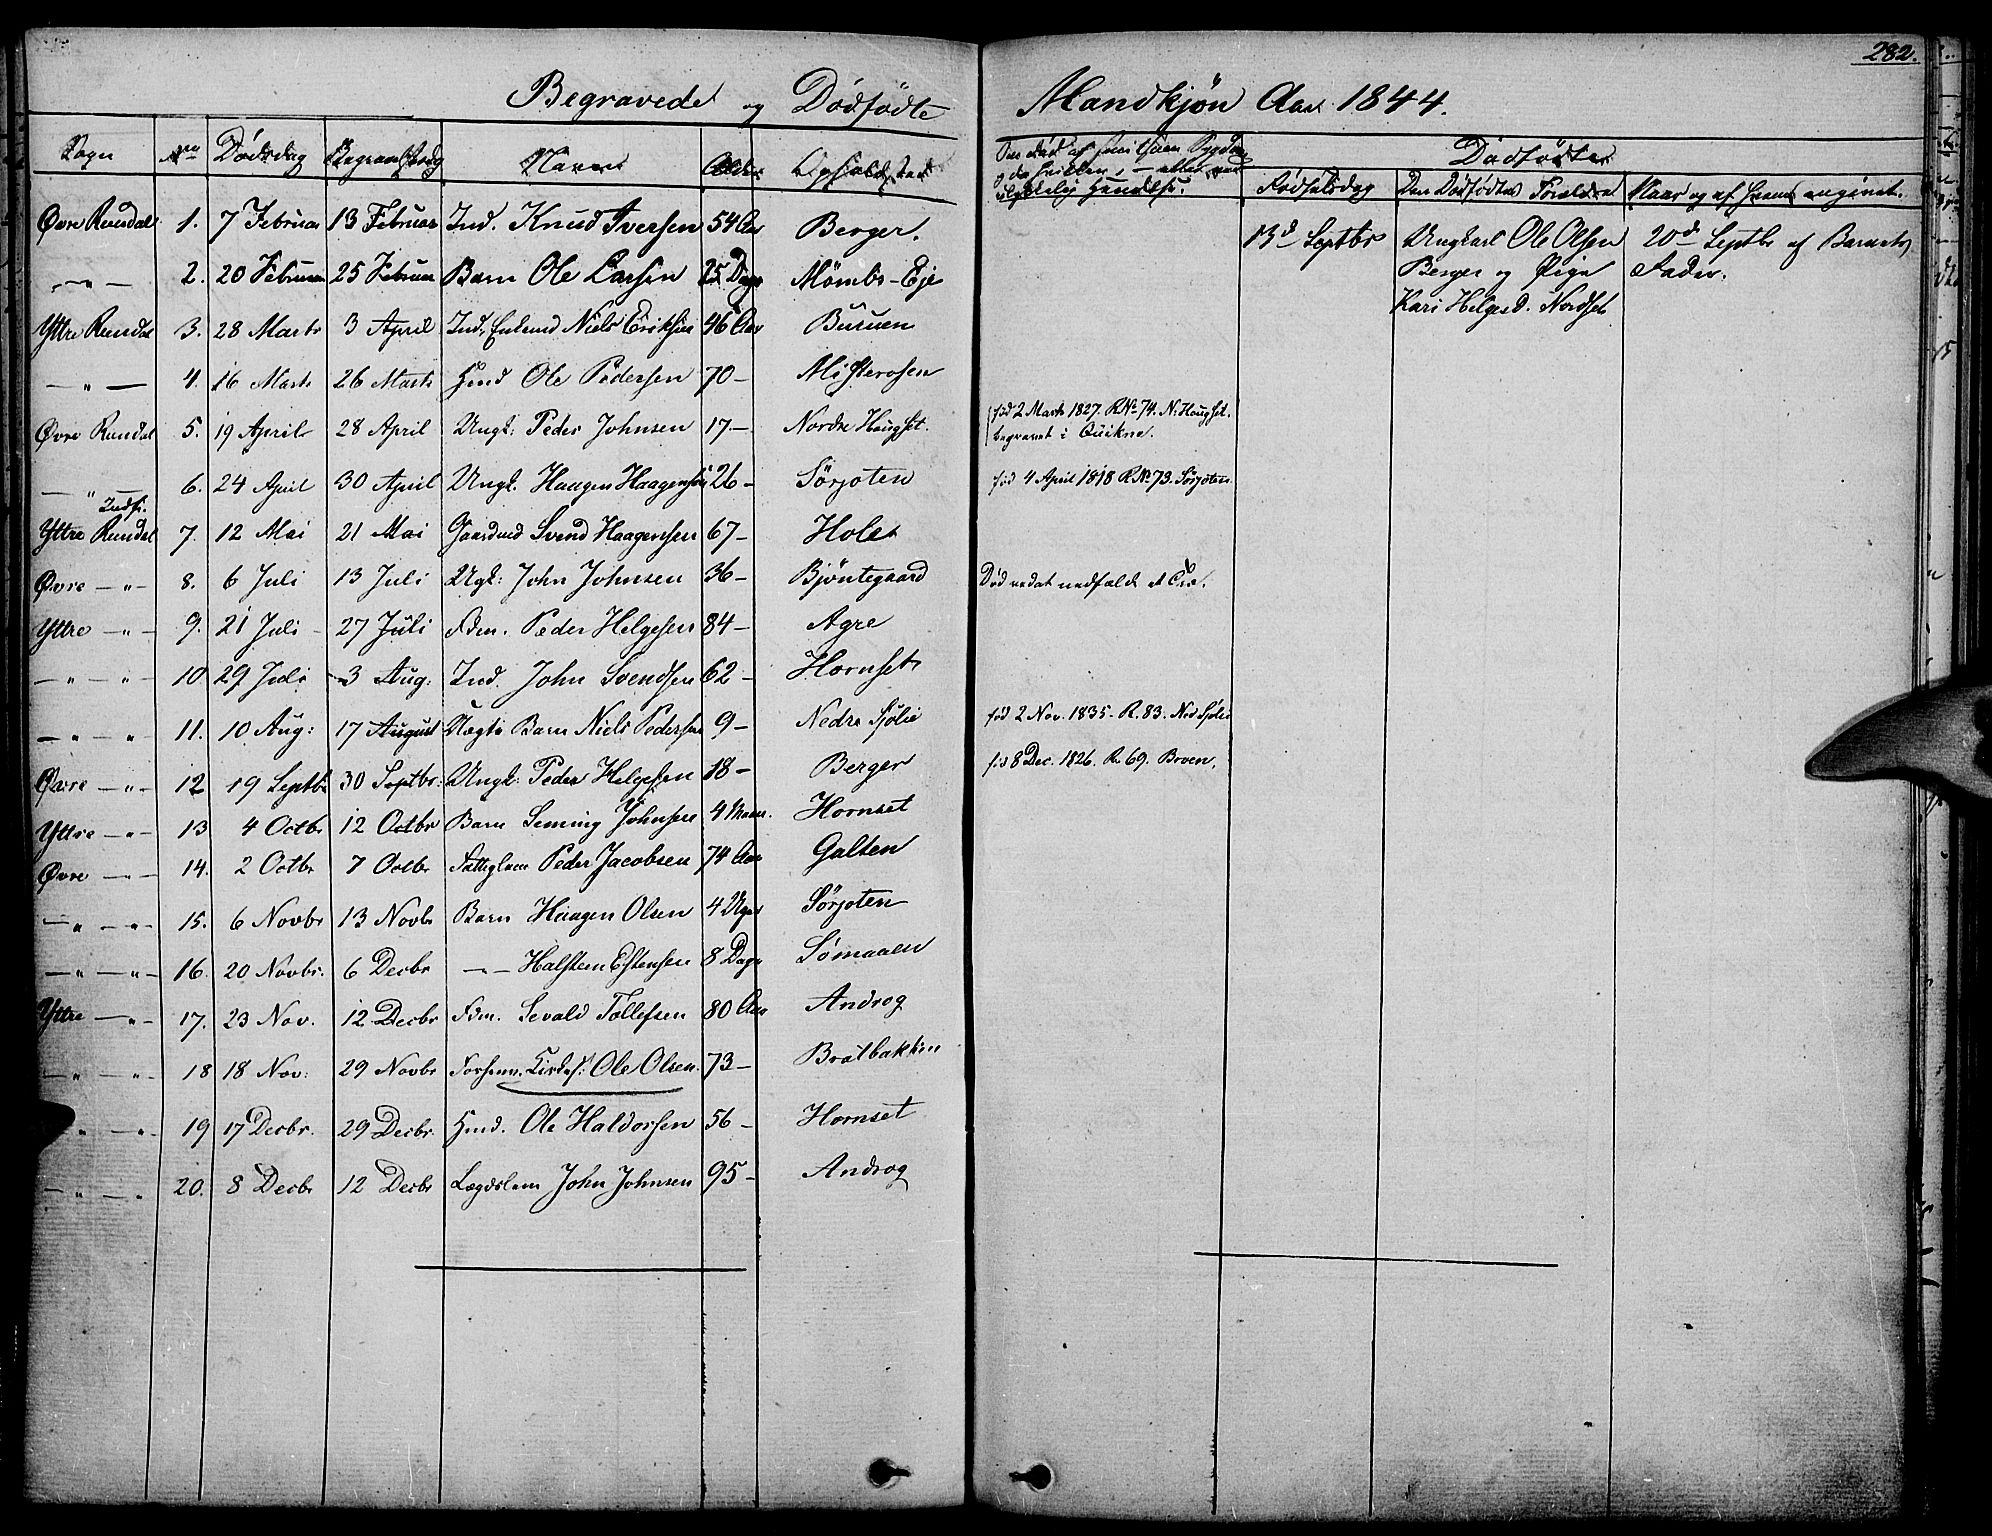 282.
Begravede og Dødfødte Mandkjøn Aar 1844.
Sogn No Dødsdag Begravelsesdag Navn Alder Opholdssted
Dødfødte
Fødselsdag Den Dødfødtes Forældre Naar og af hvem angivet.
Øvre Rendal 1. 7 Februar 13 Februar Ind. Knud Iversen 54 Aar Berger.
13d Septbr Ungkarl Ole Olsen 20d Septbr af Barnets
Berger og Pige Fader.
Kari Helgesd. Nordset
—"— 2. 20 Februar 25 Februar Barn Ole Larsen 25 Dage Mömbs-Eje
Yttre Rendal 3. 28 Marts 3 April Ind. Enkemd Niels Eriksen 46 Aar Buruen
—"— 4. 16 Marts 26 Marts Hmd Ole Pedersen 70— Misterosen
Øvre Rendal 5. 19 April 28 April Ungk: Peder Johnsen 17— Nordre Haugset. født 2 Marts 1827. R No 74. N. Haugset.
begravet i Quikne.
—"— 6. 24 April 30 April Ungk. Haagen Haagensen 26— Sørjoten fød 4 April 1818 R No 73. Sörjoten.
Yttre Rendal 7. 12 Mai 21 Mai Gaardmd Svend Haagensen 67— Holet
Øvre —"— 8. 6 Juli 13 Juli Ungk: John Johnsen 36— Bjöntegaard Død ved at nedfalde et Træ.
Yttre —"— 9. 21 Juli 27 Juli Fdm. Peder Helgesen 84— Agre
—"—"— 10 29 Juli 3 Aug: Ind. John Svendsen 62— Hornset
—"—"— 11. 10 Aug: 17 August Uægte Barn Niels Pedersen 9— Nedre Sjölie fød 2 Nov. 1835. R. 83. Ned Sjölie
Øvre —"— 12 19 Septbr 30 Septbr: Ungk: Peder Helgesen 18— Berger fød 8 Dec. 1826. R. 69. Broen.
Yttre —"— 13 4 Octbr 12 Octbr Barn Seming Johnsen 4 Maan. Hornset
Øvre —"— 14. 2 Octbr 7 Octbr Fattiglem Peder Jacobsen 74 Aar Galten
—"—"— 15. 6 Novbr 13 Novbr Barn Haagen Olsen 4 Uger Sørjoten
—"—"— 16. 20 Novbr. 6 Decbr —"— Halsten Estensen 8 Dage Sømaaen
Yttre —"— 17. 23 Nov. 12 Decbr Fdm. Sevald Tollefsen 80 Aar Androg
—"—"— 18 18 Nov: 29 Novbr Ole Olsen. 73— Bratbakken
—"—"— 19 17 Decbr. 29 Decbr. Hmd. Ole Haldorsen 56— Hornset
—"—"— 20. 8 Decbr 12 Decbr Lægdslem John Johnsen 95— Androg